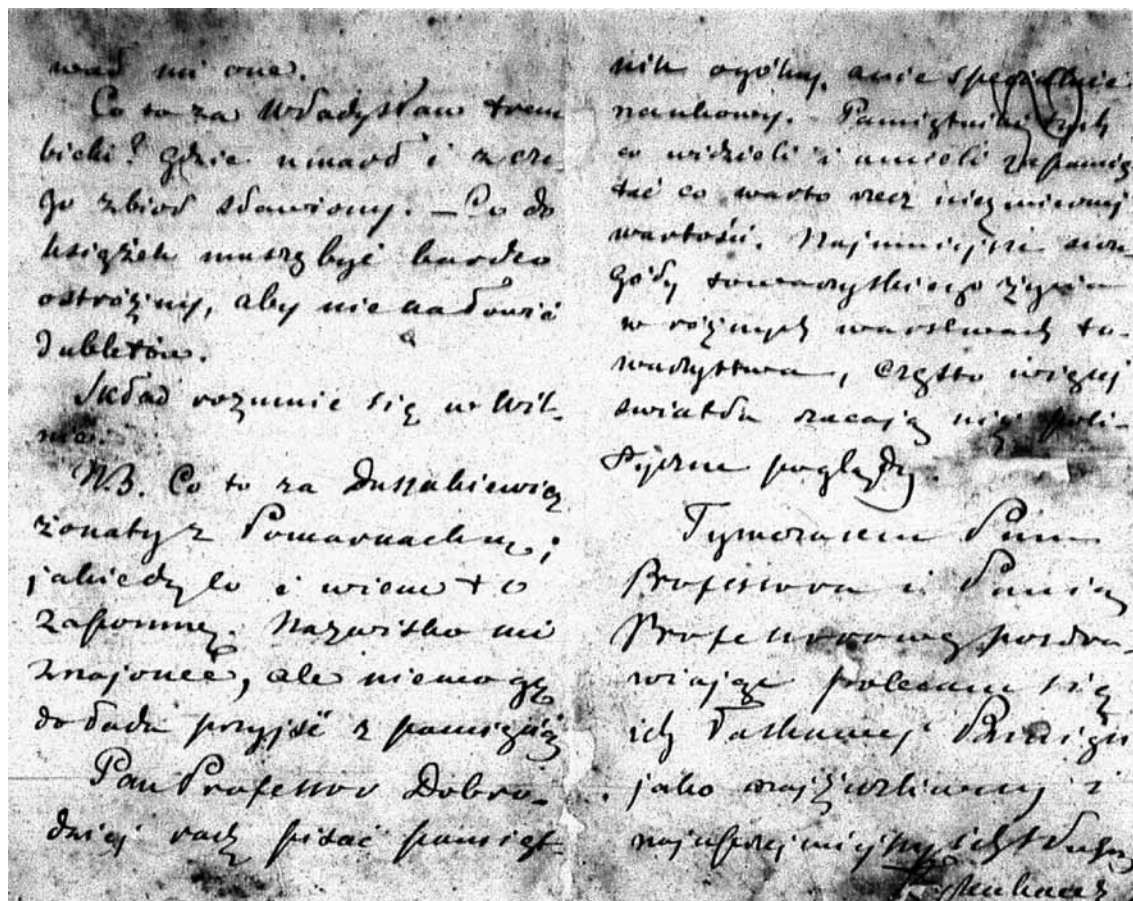 wał mi one.
Co to za Władysław Trem
bicki? gdzie umarł i z cze
go zbiór sławiony. — Co do
książek muszę być bardzo
ostrożny, aby nie nałowić
dubletów.
Skład rozumie się w Wil-
nie.
N.B. Co to za
żonaty z
i wiem to
zapomnę. Nazwisko mi
znajome, ale niemogę
do ładu przyjść z pamięcią
Pan Professor Dobro-
dziej raczy pisać pamięt-
nik ogólny, a nie specialnie
naukowy. Pamiętniki tych
co widzieli i umieli zapamię
tać co warto rzecz niezmiernej
wartości. Najmniejsze
towarzyskiego życia
w różnych warstwach to-
warzystwa, często więcej
światła rzucają niż poli-
tyczne poglądy.
Tymczasem Pana
Professora i Panią
Professorową pozdra-
wiając polecam się
ich łaskawej Pamięci
jako najżyczliwszy i
najuprzejmiejszy ich sługa